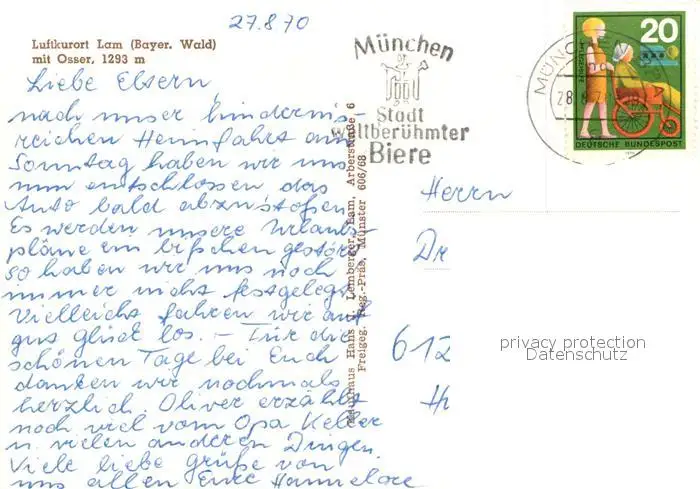 27.8.70
Luftkurort Lam (Bayer. Wald)
mit Osser, 1293 m
Liebe Eltern,
nach unser hindernis-
reichen Heimfahrt am
Sonntag haben wir uns
nun entschlossen das
Auto bald abzustoßen.
Es werden unsere Urlaubs
pläne ein bißchen gestört
so haben wir uns noch
immer nicht festgelegt.
Vielleicht fahren wir auf
gut glück los. – Für die
schönen Tage bei Euch
danken wir nochmals
herzlich. Oliver erzählt
noch viel vom Opa Keller
u. vielen anderen Dingen.
Viele liebe grüße von
uns allen Eure Hannelore
Hans Lemberger, Lam, Arberstraße 6
Freigeg. Reg.-Präs. Münster 606/68
München
Stadt
weltberühmter
Biere
MÜNC
28.8.7
20
DEUTSCHE BUNDESPOST
Herrn
Dr
612
privacy protection
Datenschutz